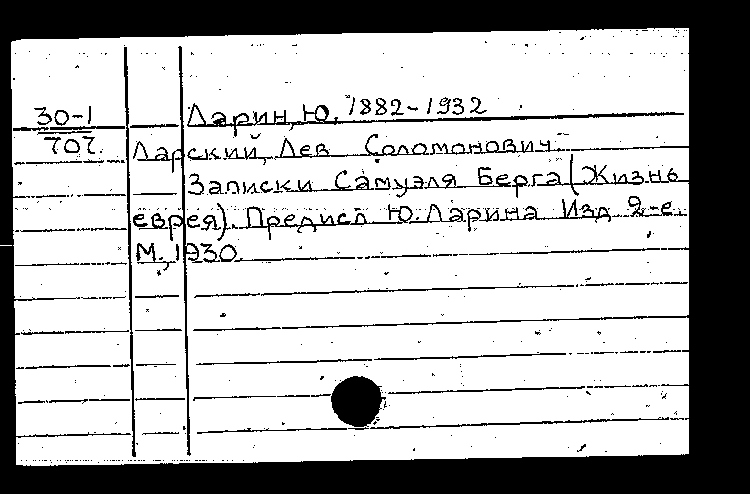 30-1
707.
Ларин, Ю. 1882-1932
Ларский, Лев Соломонович.
Записки Самуэля Берга (Жизнь
еврея). Предисл Ю. Ларина Изд 2-е.
М., 1930.